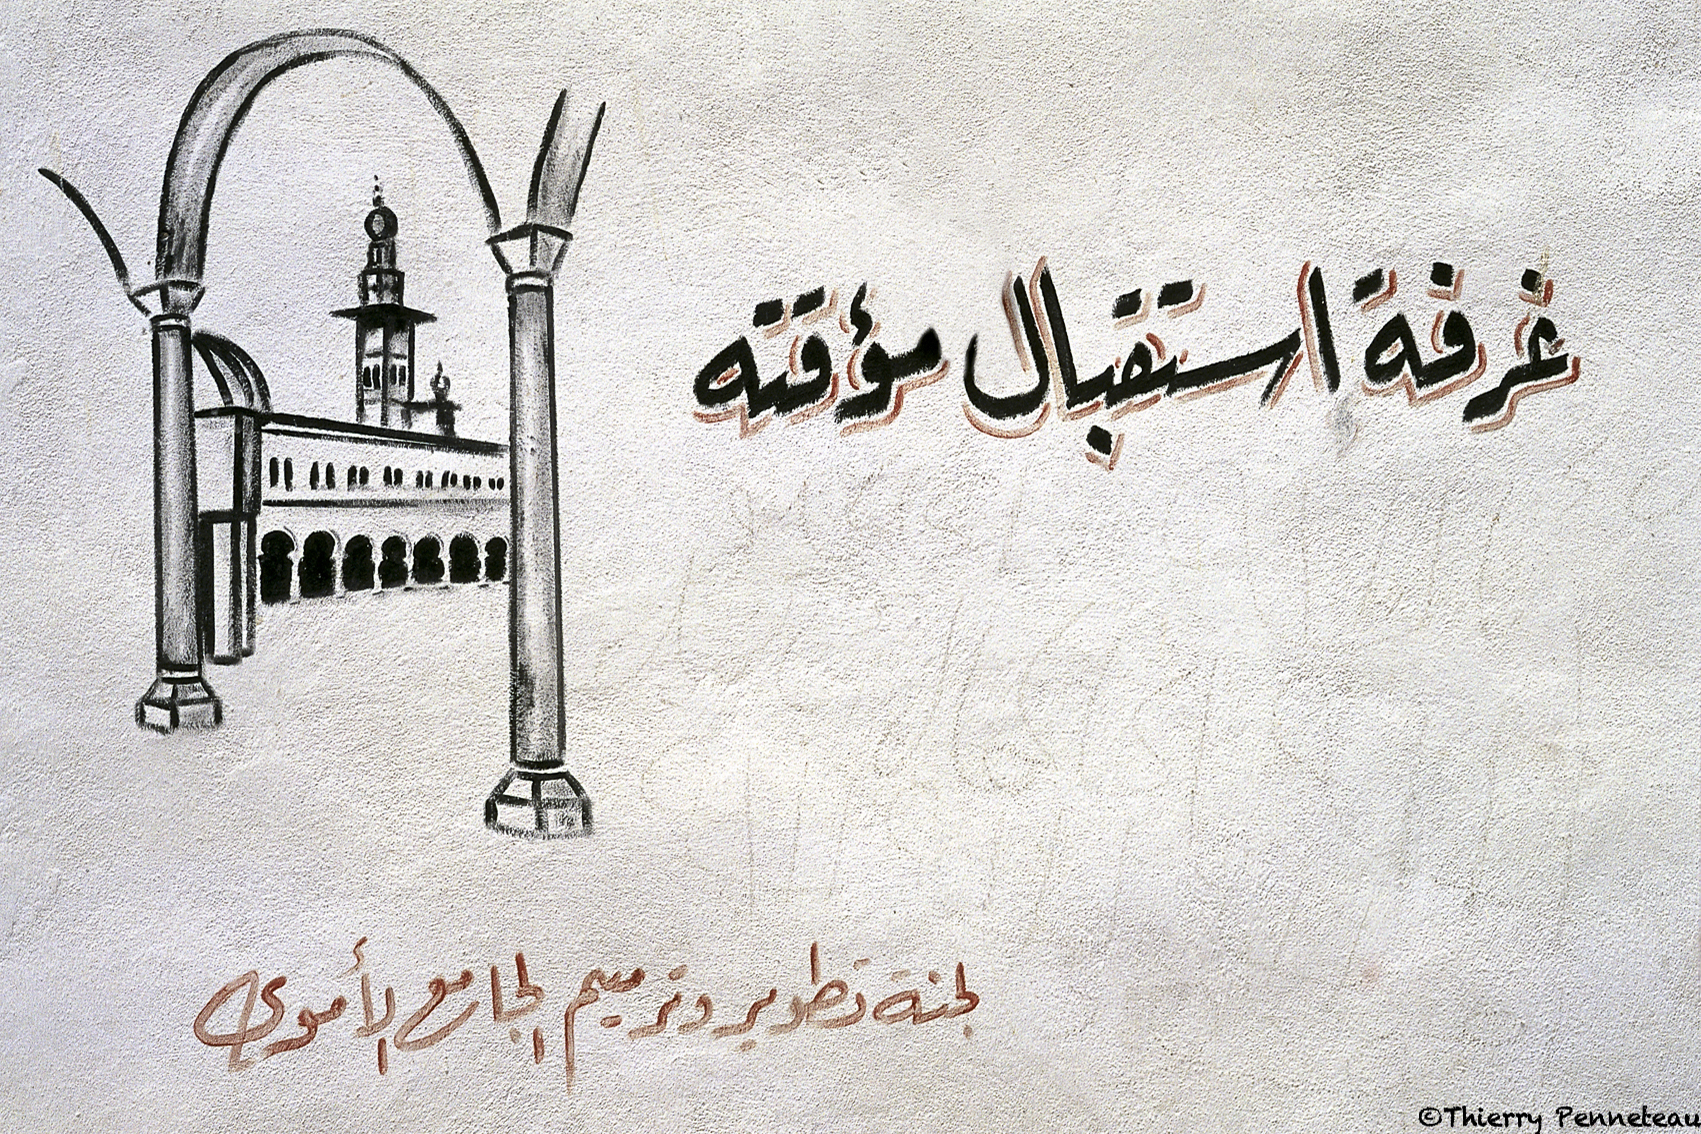 غرفة استقبال مؤقتة
لجنة تطوير وترميم الجامع الأموي
©Thierry Penneteau